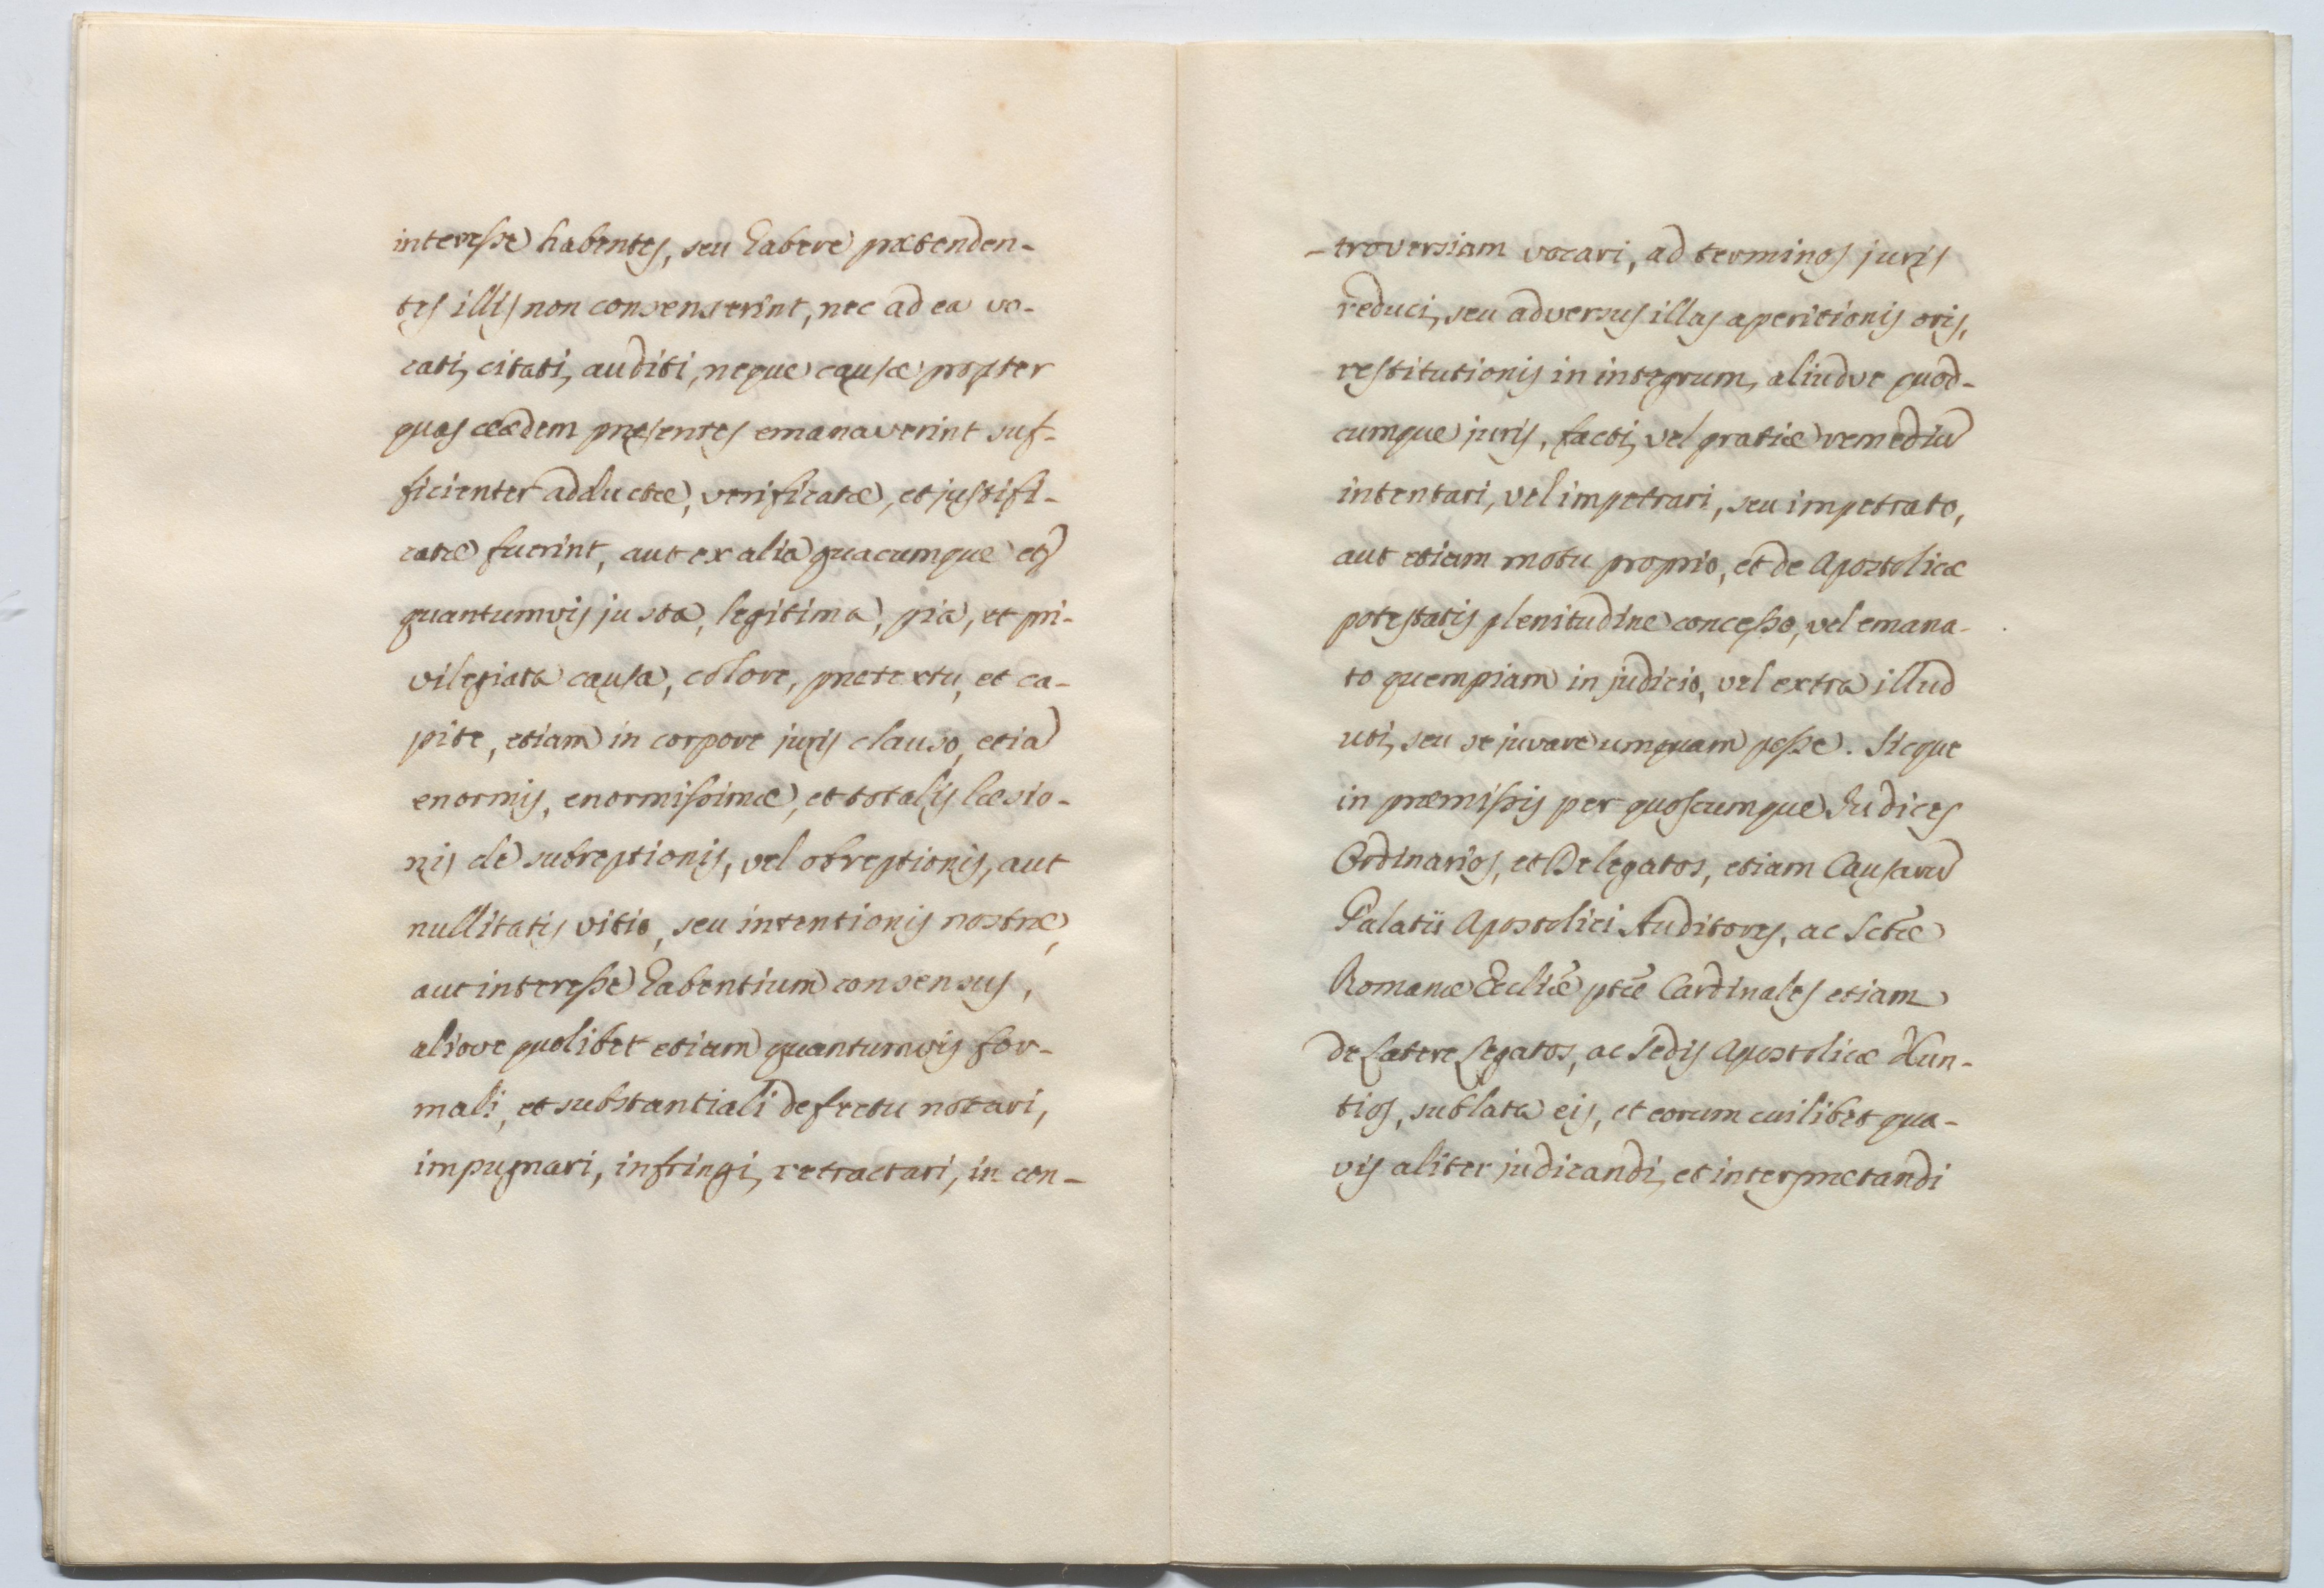 interesse habentes, seu habere prætenden-
tes illis non consenserint, nec ad ea vo-
cati, citati, auditi, neque causæ propter
quas eædem præsentes emanaverint suf-
ficienter adductæ, verificatæ, et justifi-
catæ fuerint, aut ex alia quacumque etq̃
quantumvis justa, legitima, pia, et pri-
vilegiata causa, colore, prætextu, et ca-
pite, etiam in corpore juris clauso, etiã
enormis, enormissimæ, et totalis læsio-
nis de subreptionis, vel obreptionis, aut
nullitatis vitio, seu intentionis nostræ,
aut interesse habentium consensus,
aliove quolibet etiam quantumvis for-
mali, et substantiali defectu notari,
impugnari, infringi, retractari, in con-
-troversiam vocari, ad terminos juris
reduci, seu adversus illas aperitionis oris,
restitutionis in integrum, aliudve quod-
cumque juris, facti, vel gratiæ remediũ
intentari, vel impetrari, seu impetrato,
aut etiam motu proprio, et de Apostolicæ
potestatis plenitudine concesso, vel emana-
to quempiam in judicio, vel extra illud
uti, seu se juvare umquam posse. Sicque
in præmissis per quoscumque Judices
Ordinarios, et Delegatos, etiam Causarũ
Palatii Apostolici Auditores, ac Sctæ̃
Romanæ Ecclĩæ ptæ̃ Cardinales etiam
de Latere Legatos, ac Sedis Apostolicæ Nun-
tios, sublata eis, et eorum cuilibet qua-
vis aliter judicandi, et interpretandi